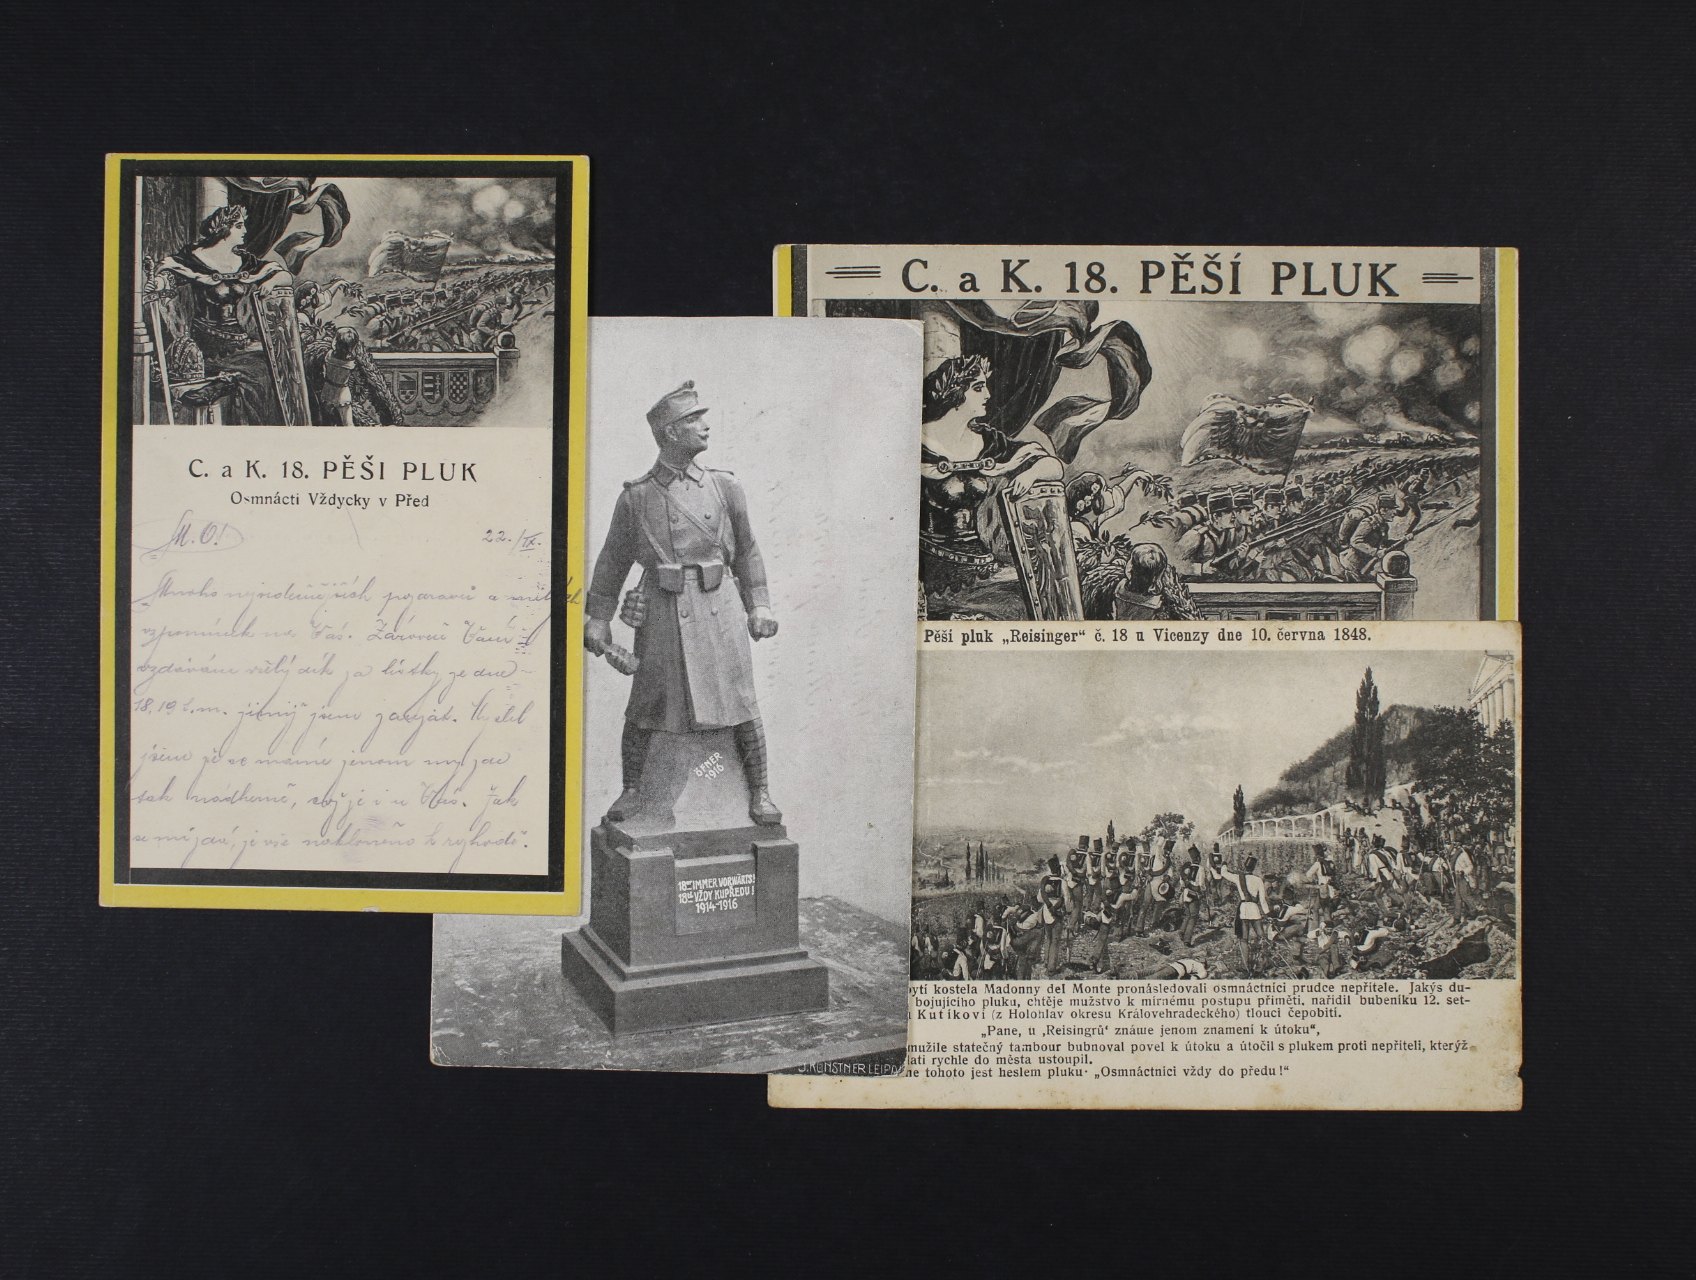 C. a K. 18. PĚŠI PLUK
Osmnácti Vždycky v Před
M. O! 22./IX.
Mnoho nejsrdečnějších pozdravů a
vzpomínek na Vás. Zároveň Vám
vzdávám vřelý dík za lístky ze dne
18, 19 t. m. jsme
jsme že se máme jenom my
tak nádherně, i u Vás. Jak
je vše
ÖFNER
1916
18er IMMER VORWÄRTS!
18ti VŽDY KUPŘEDU!
1914-1916
J. KUNSTNER LEIPA
C. a K. 18. PĚŠÍ PLUK
Pěší pluk „Reisinger“ č. 18 u Vicenzy dne 10. června 1848.
bytí kostela Madonny del Monte pronásledovali osmnáctníci prudce nepřítele. Jakýs du-
bojujícího pluku, chtěje mužstvo k mírnému postupu přiměti, nařídil bubeníku 12. set-
Kutíkovi (z Holohlav okresu Královehradeckého) tlouci čepobití.
„Pane, u ‚Reisingrů‘ známe jenom znamení k útoku“,
mužile statečný tambour bubnoval povel k útoku a útočil s plukem proti nepříteli, kterýž
lati rychle do města ustoupil.
ne tohoto jest heslem pluku: „Osmnáctníci vždy do předu!“